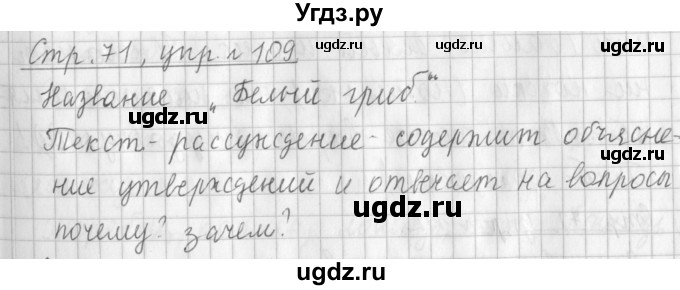 Угдз.ру
Стр. 71, упр. № 109 ugdz.ru ugdz.ru
Название „Белый гриб."
ugdz.ru
Текст-рассуждение - содержит объясне-
ugdz.ru
ние утверждений и отвечает на вопросы
ugdz.ru
почему? зачем? ugdz.ru
ugdz.ru